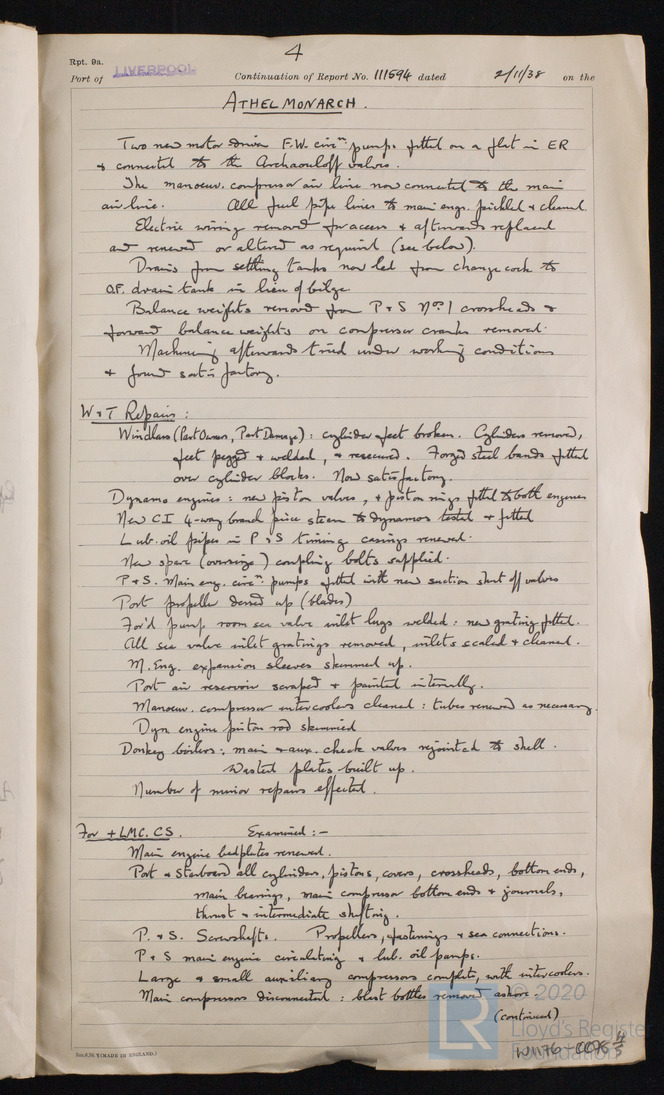 4
Rpt. 9a.
Port of LIVERPOOL Continuation of Report No. 111594 dated 2/11/38 on the
ATHELMONARCH.
Two new motor driven F.W. circn. pumps fitted on a flat in ER
& connected to the Archaouloff valves.
The manoeuv. compressor air line now connected to the main
air line. All fuel pipe lines to main engs. pickled & cleaned
Electric wiring removed for access & afterwards replaced
and renewed or altered as required (see below).
Drains from settling tanks now led from change cock to
O.F. drain tank in lieu of bilge
Balance weights removed from P & S Nos. 1 crossheads &
forward balance weights on compressor cranks removed.
Machinery afterwards tried under working conditions
& found satisfactory.
W & T Repairs:
Windlass (Part Owners, Part Damage): cylinder feet broken. Cylinders removed,
feet pegged & welded, & resecured. Forged steel bands fitted
over cylinder blocks. Now satisfactory.
Dynamo engines: new piston valves, & piston rings fitted to both engines
New CI 4-way branch piece steam to dynamos tested & fitted
Lub. oil pipes in P & S timing casings renewed.
New spare (oversize) coupling bolts supplied.
P & S. Main eng. circn. pumps fitted with new suction shut off valves
Port propeller dressed up (blades)
For'd pump room sea valve inlet lugs welded: new grating fitted.
All sea valve inlet gratings removed, inlets scaled & cleaned.
M. Eng. expansion sleeves skimmed up.
Port air reservoir scraped & painted internally.
Manoeuv. compressor intercoolers cleaned: tubes renewed as necessary.
Dyn engine piston rod skimmed
Donkey boilers: main & aux. check valves rejointed to shell.
Wasted plates built up.
Number of minor repairs effected.
For + LMC. CS. Examined:-
Main engine bedplates renewed.
Port & Starboard all cylinders, pistons, covers, crossheads, bottom ends,
main bearings, main compressor bottom ends & journals,
thrust & intermediate shafting.
P. & S. Screwshafts. Propellers, fastenings & sea connections.
P & S main engine circulating & lub. oil pumps.
Large & small auxiliary compressors complete, with intercoolers.
Main compressors disconnected: blast bottles removed ashore.
(continued)
© 2020
LR
Lloyd's Register
Foundation
W1176-0096 4/5
(MADE IN ENGLAND.)